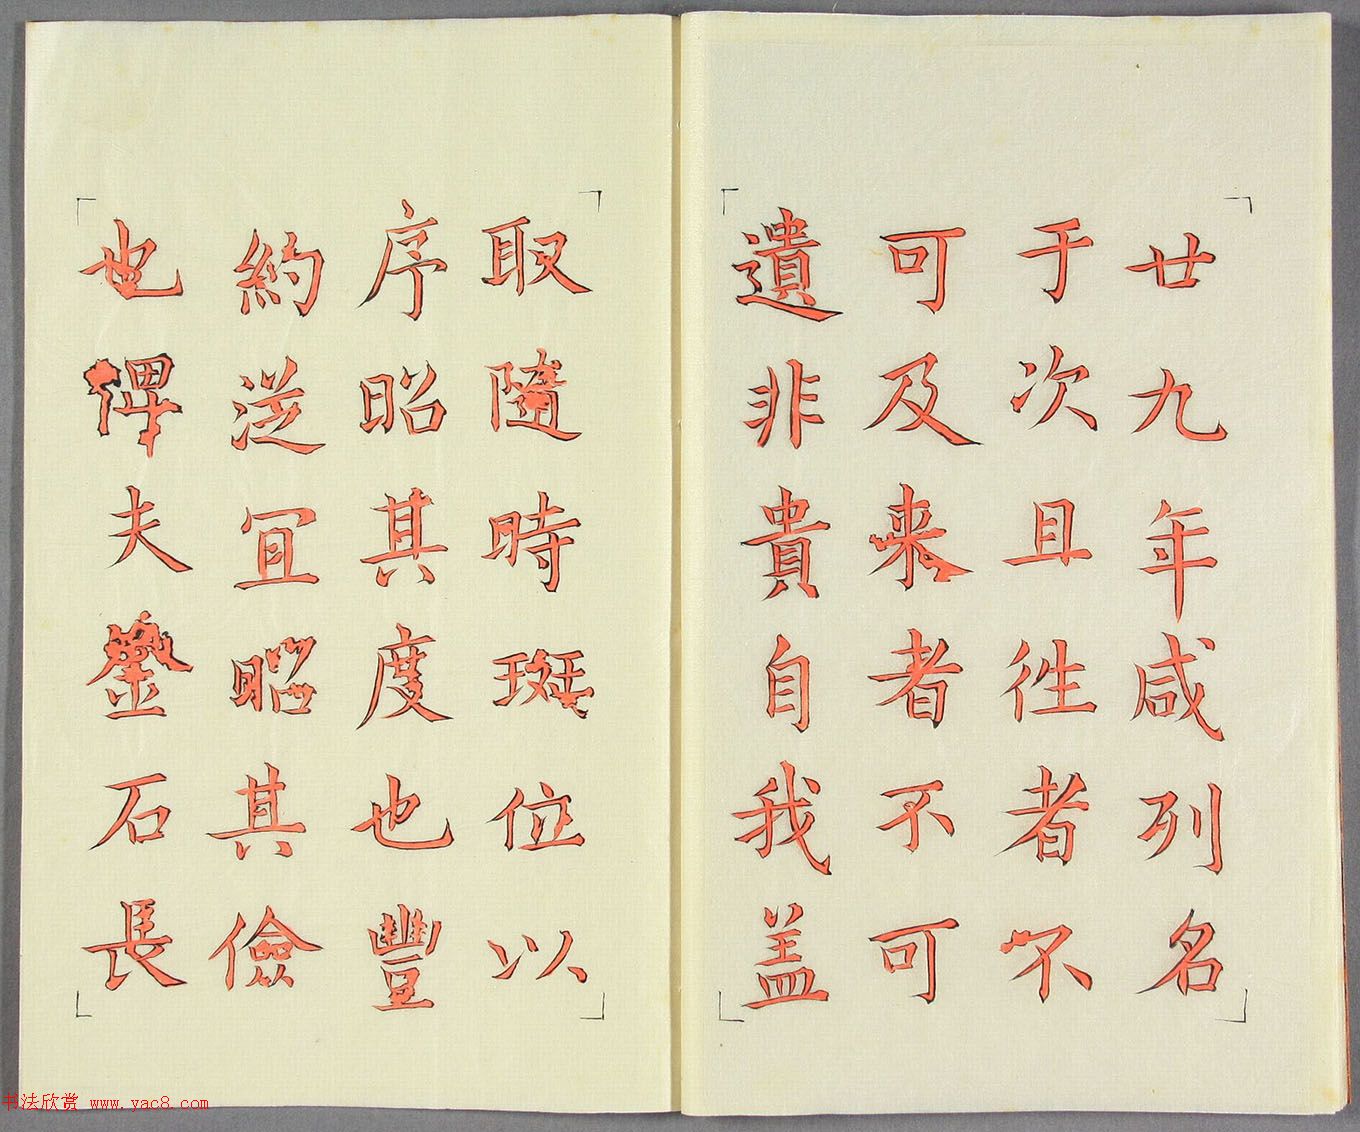 廿九年咸列名
于次且徃者不
可及来者不可
遺非貴自我盖
取隨時班位以
序昭其度也豐
約從宜昭其儉
也俾夫鏨石長
书法欣赏 www.yac8.com